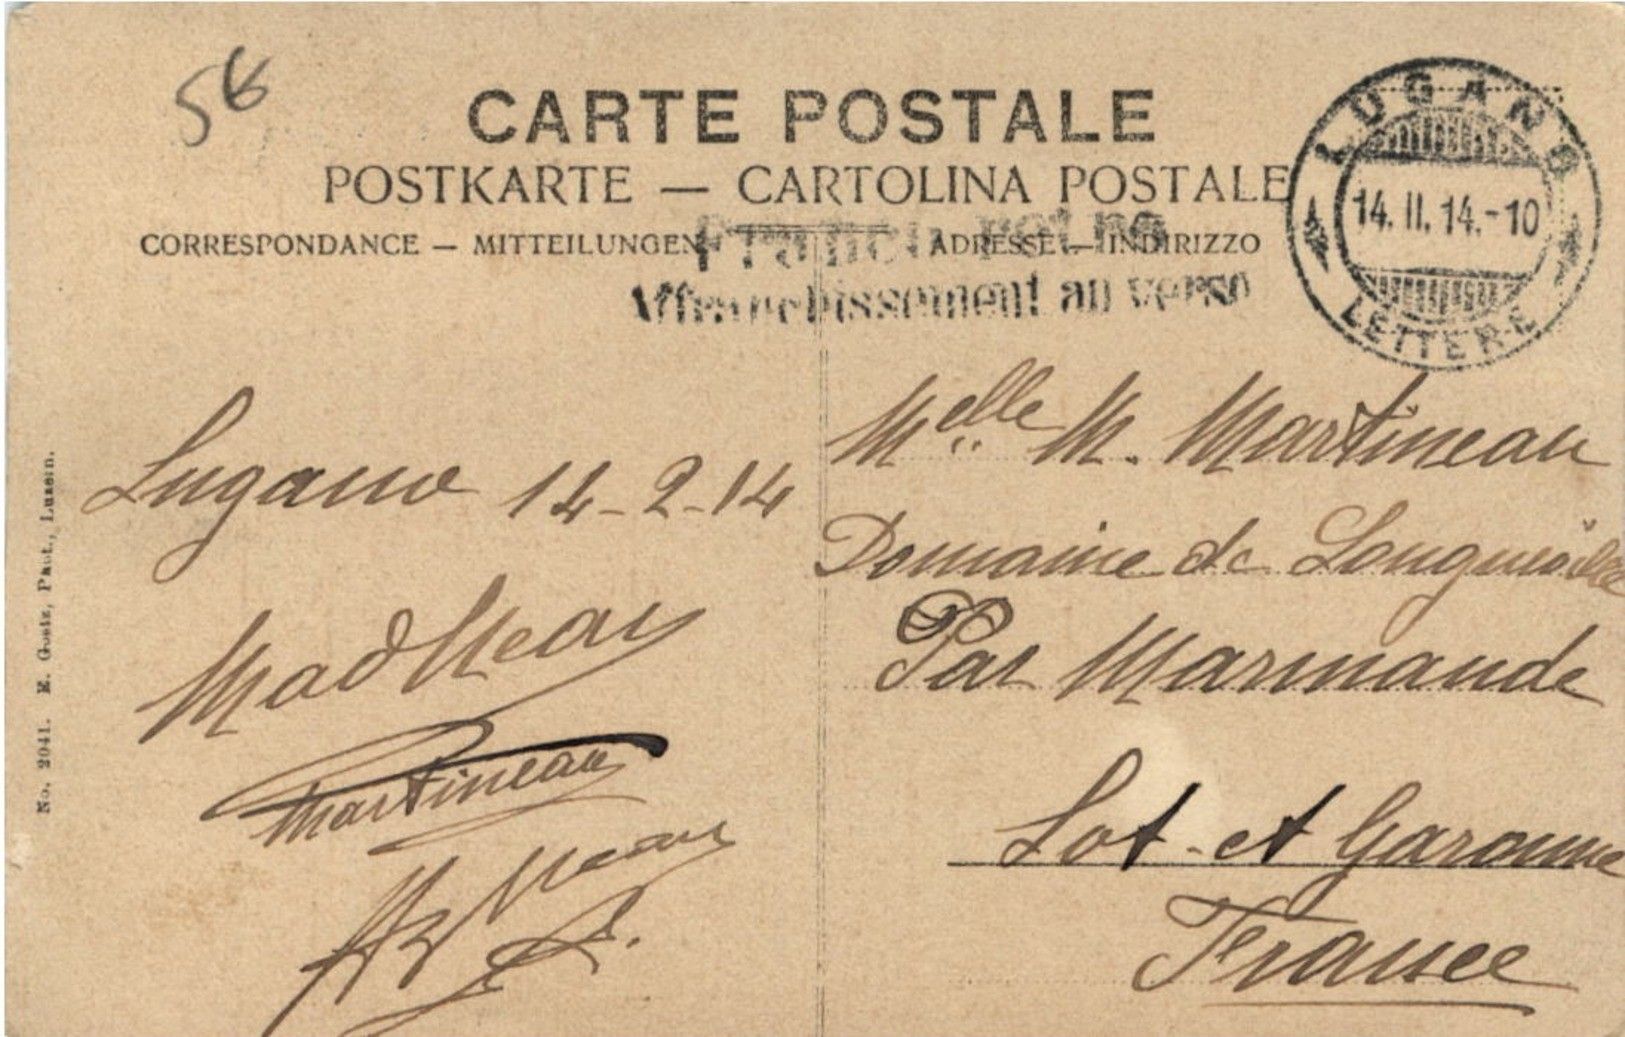 56
CARTE POSTALE
POSTKARTE — CARTOLINA POSTALE
CORRESPONDANCE — MITTEILUNGEN
ADRESSE — INDIRIZZO
Affranchissement au verso
LUGANO
14. II. 14.-10
LETTERE
Lugano 14-2-14
Martineau
Melle M. Martineau
Domaine de
Par Marmande
Lot-et Garonne
France
No. 2041. E. Goetz, Luzern.